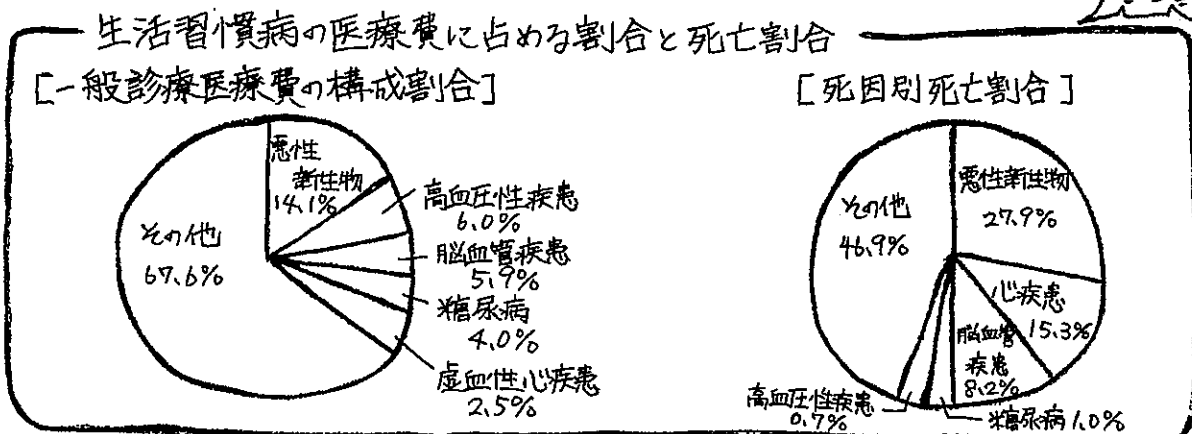 生活習慣病の医療費に占める割合と死亡割合
[一般診療医療費の構成割合]
悪性
新生物
14.1%
高血圧性疾患
6.0%
脳血管疾患
5.9%
糖尿病
4.0%
虚血性心疾患
2.5%
その他
67.6%
[死因別死亡割合]
悪性新生物
27.9%
心疾患
15.3%
脳血管
疾患
8.2%
糖尿病1.0%
高血圧性疾患
0.7%
その他
46.9%